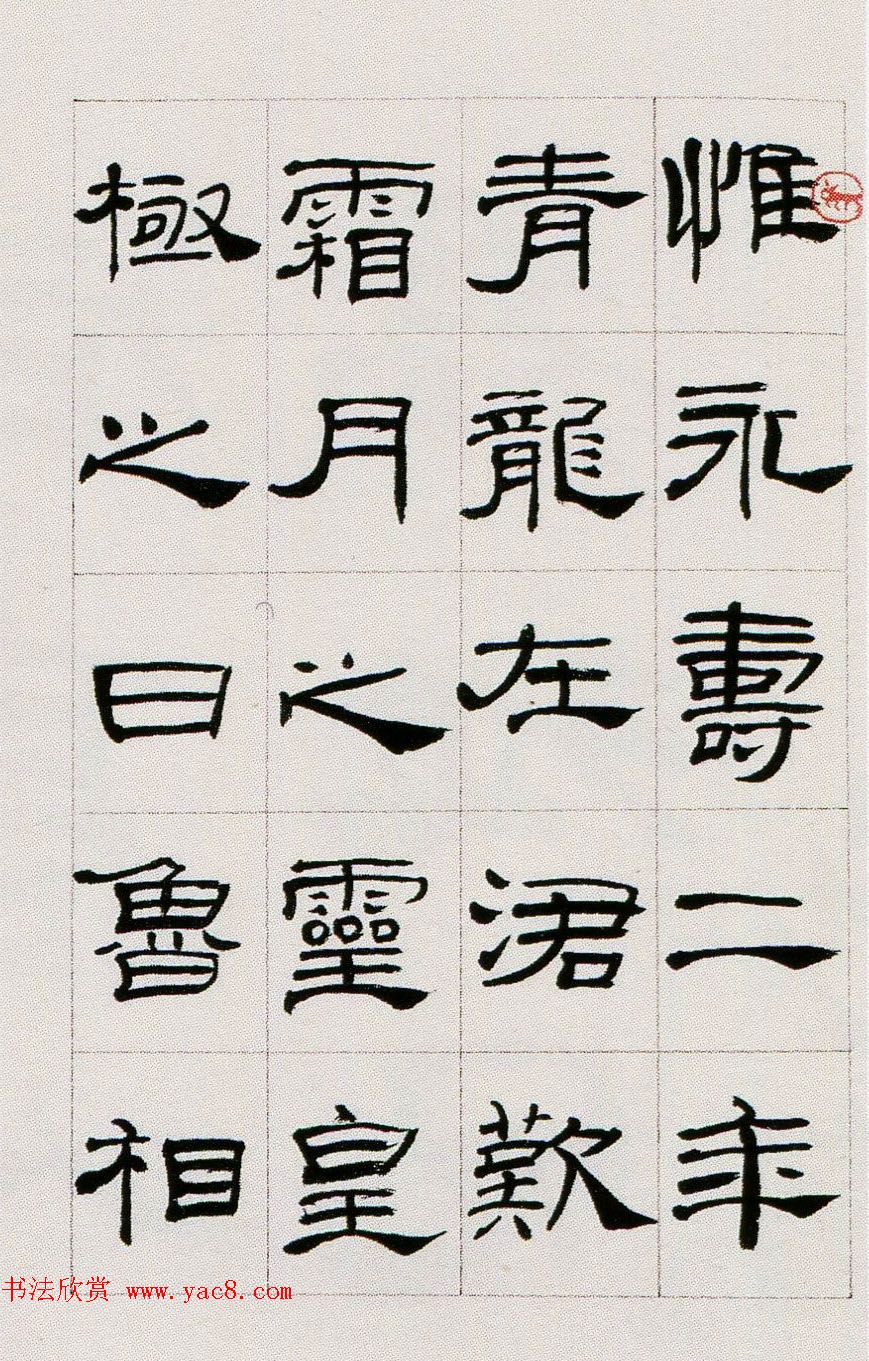 惟永壽二年
青龍在涒歎
霜月之靈皇
極之日魯相
书法欣赏 www.yac8.com